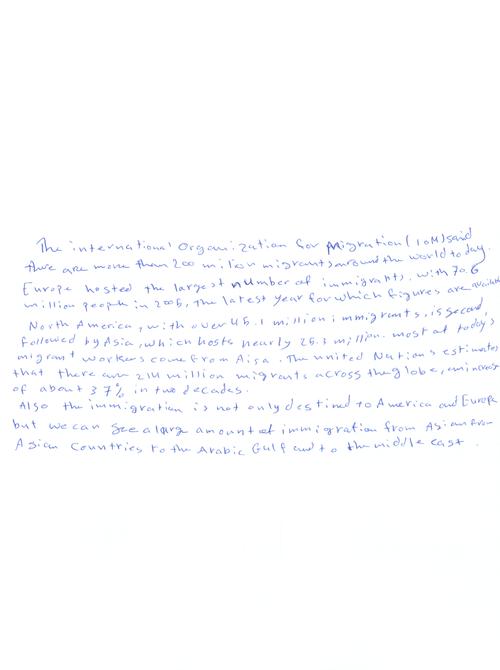 The international Organization for Migration (IOM) said
there are more than 200 million migrants around the world today.
Europe hosted the largest number of immigrants, with 70.6
million people in 2005, the latest year for which figures are available
North America, with over 45.1 million immigrants, is second
followed by Asia, which hosts nearly 25.3 million. most of today's
migrant workers come from Aisa. The united Nations estimates
that there are 214 million migrants across the globe, an increase
of about 37% in two decades.
Also the immigration is not only destined to America and Europe
but we can see a large amount of immigration from Asian from
Asian Countries to the Arabic Gulf and to the middle east.